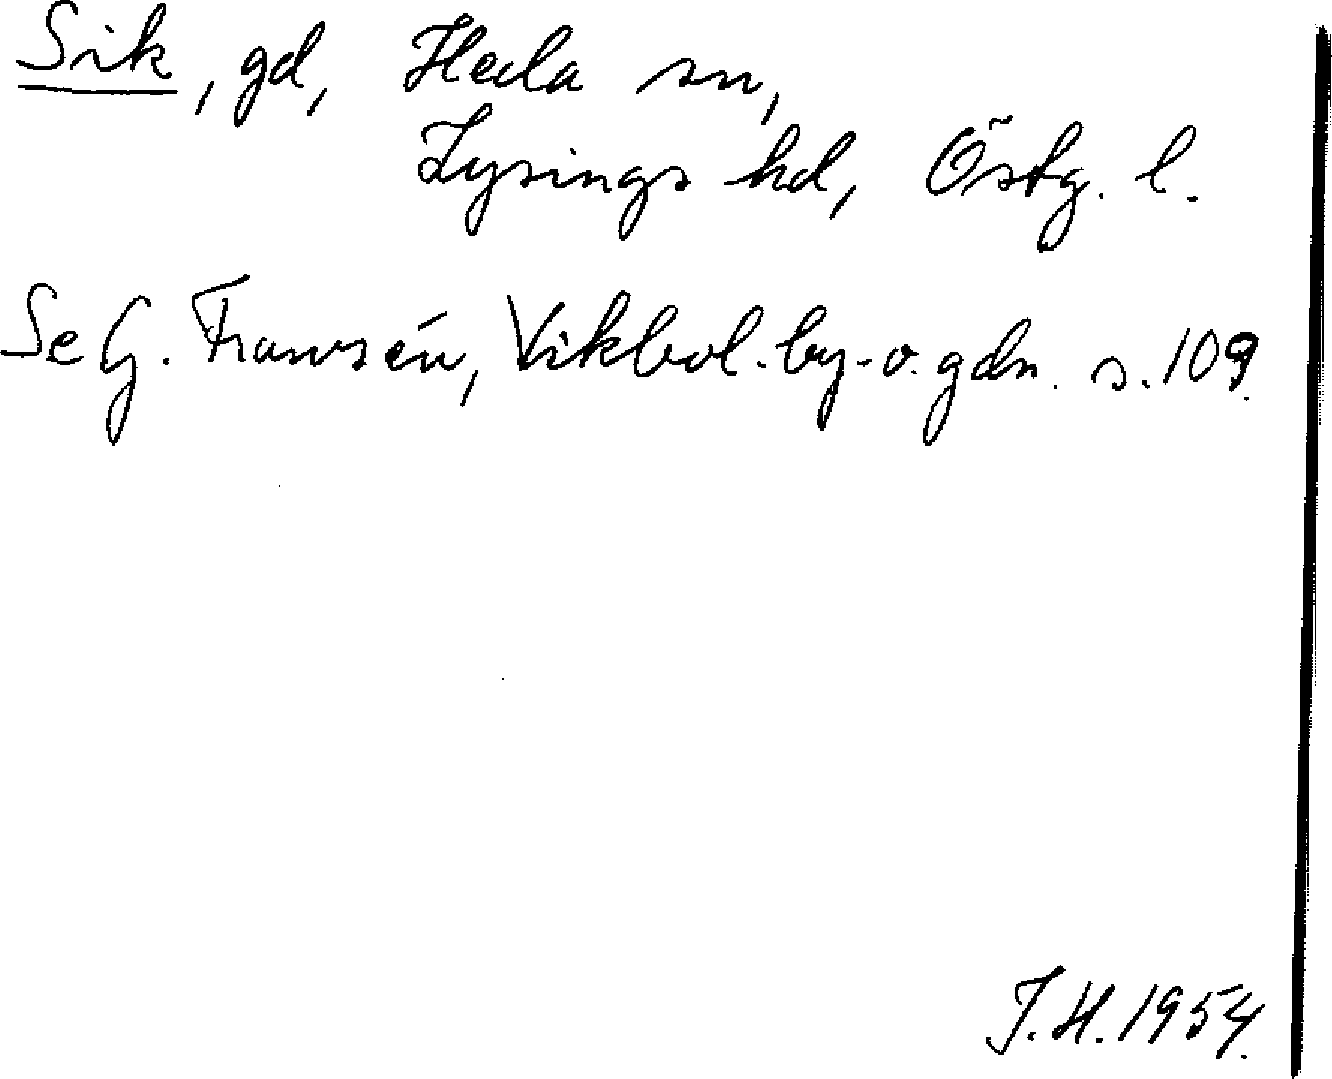 Sik, gd, Heda sn,
Lysings hd, Östg. l.
Se G. Fransén, Vikbol. by- o. gdn. s. 109.
J. H. 1954.